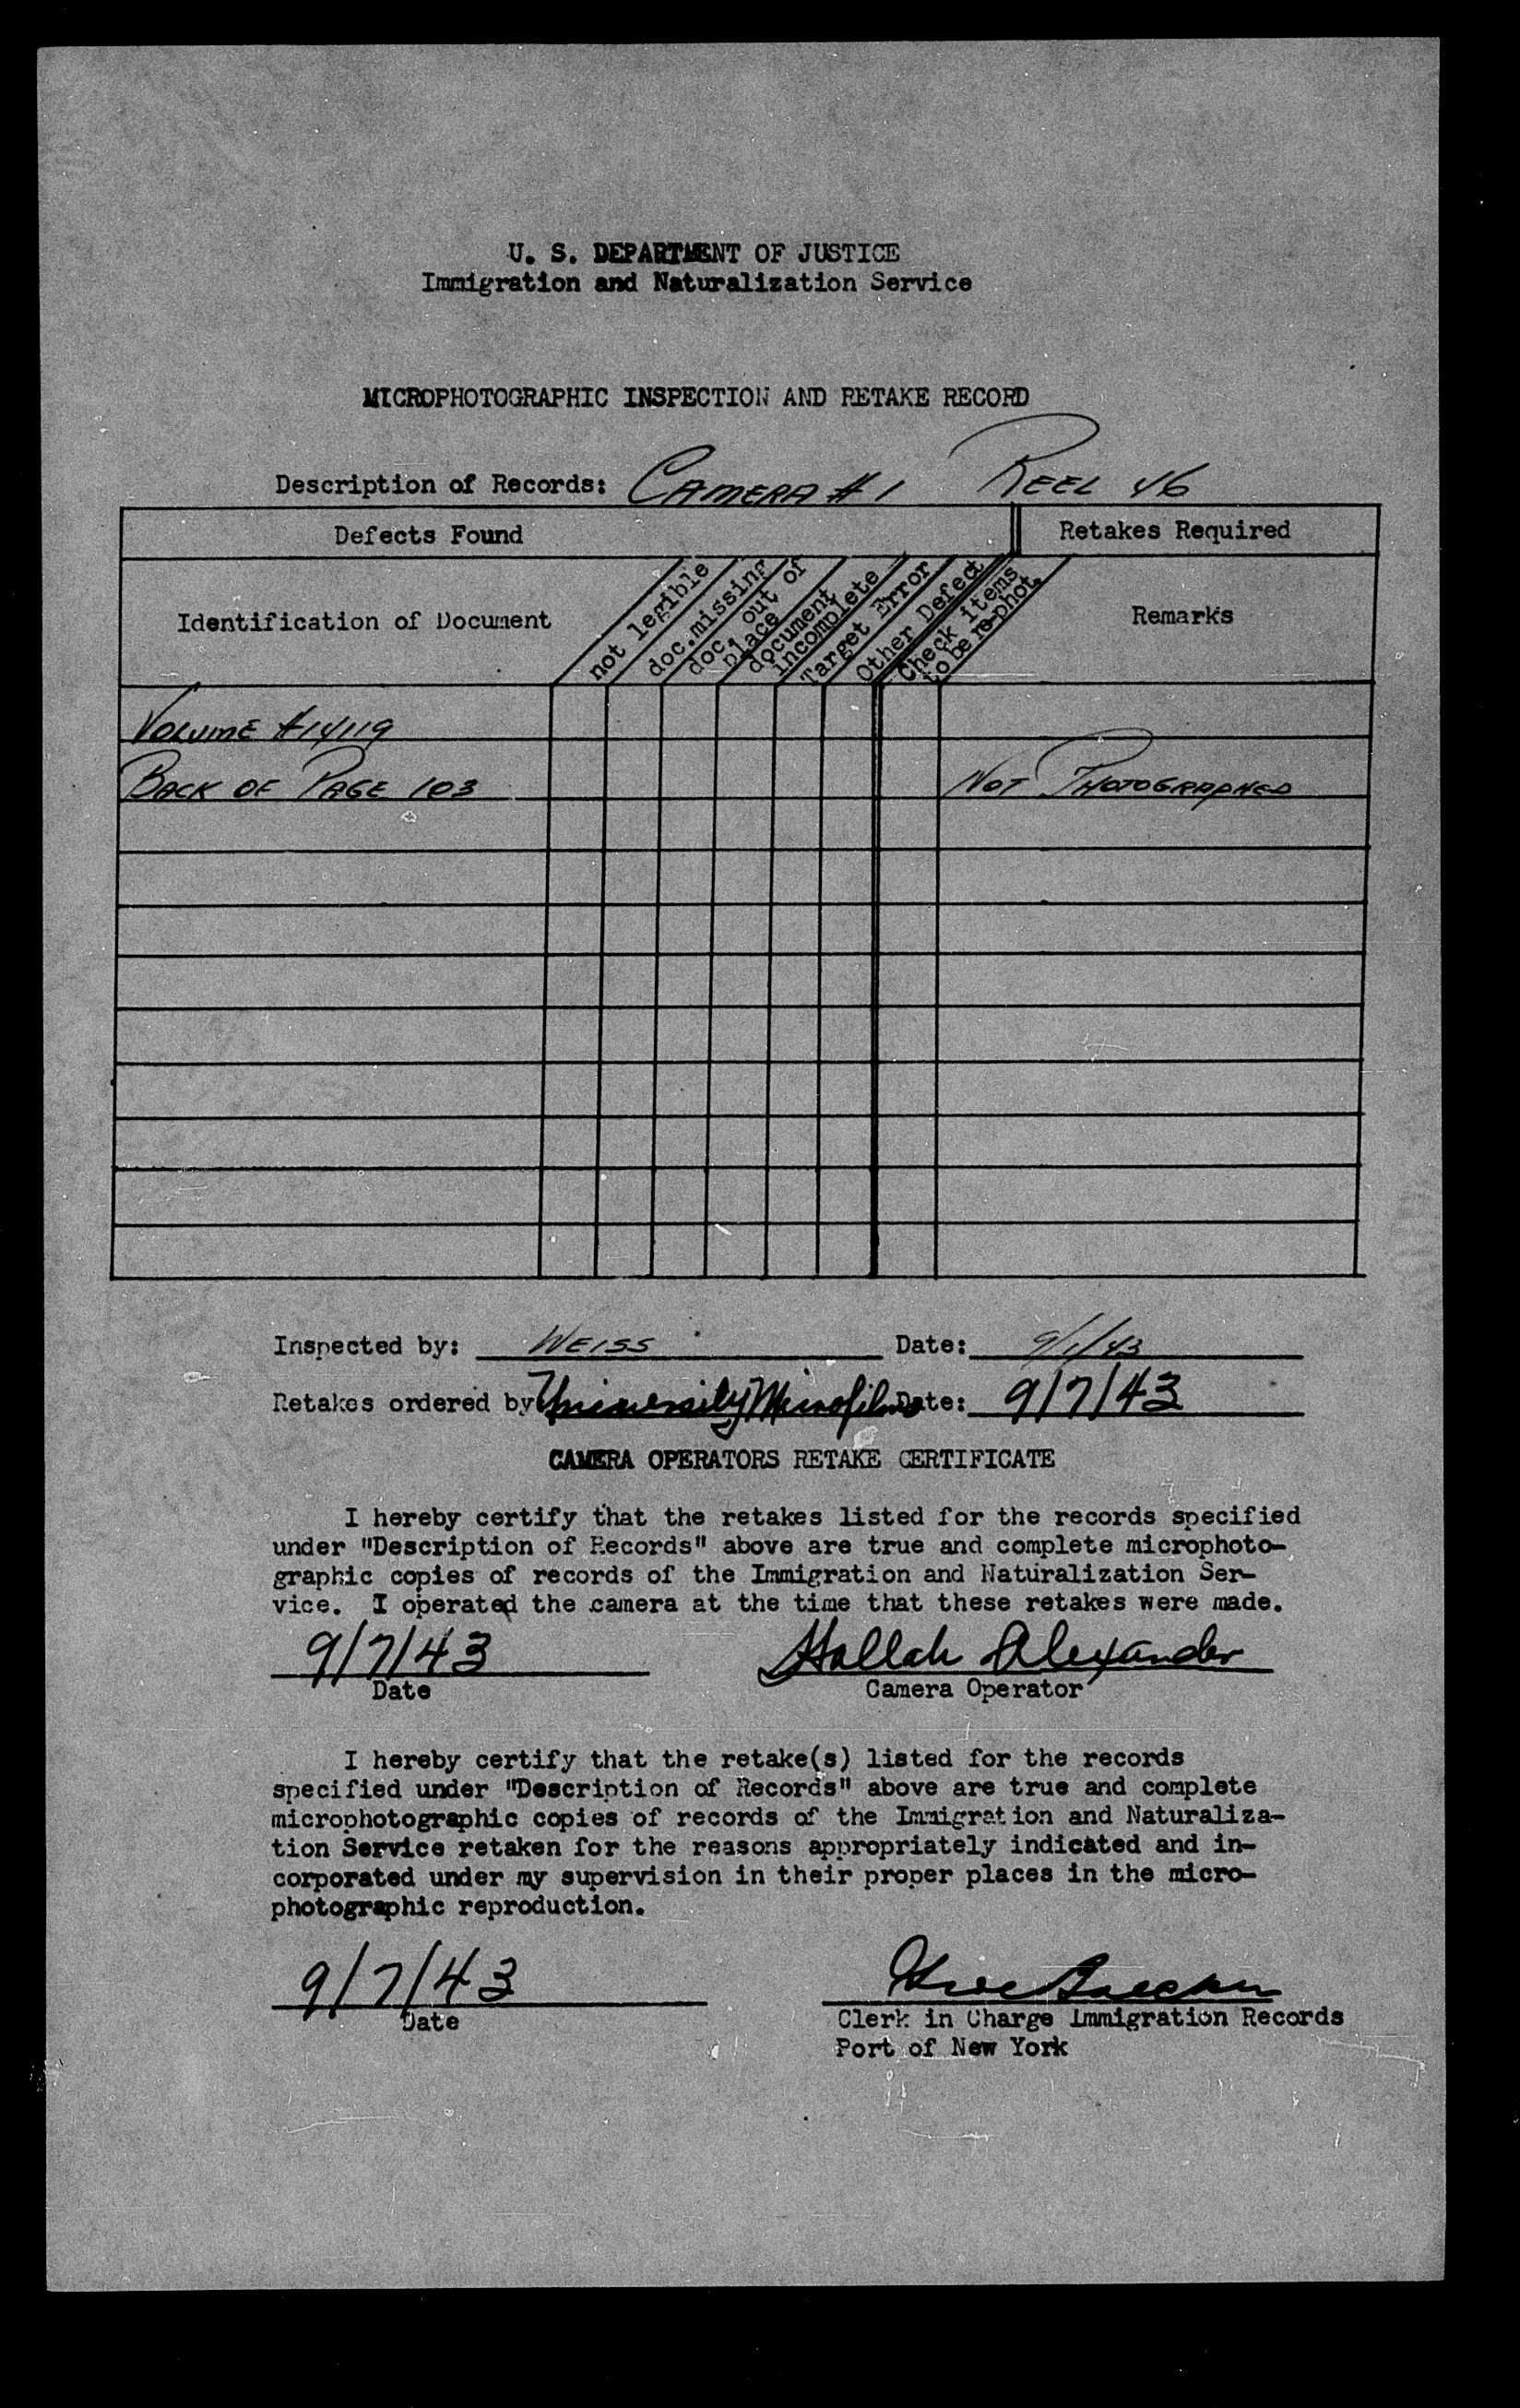 U. S. DEPARTMENT OF JUSTICE
Immigration and Naturalization Service
MICROPHOTOGRAPHIC INSPECTION AND RETAKE RECORD
Description of Records: CAMERA #1 REEL 46
Defects Found
Retakes Required
Identification of Document
not legible
doc. missing
doc. out of
place
document
incomplete
Target Error
Other Defect
Check items
to be re-phot.
Remarks
VOLUME #14119
BACK OF PAGE 103 NOT PHOTOGRAPHED
Inspected by: WEISS Date: 9/1/43
Retakes ordered by University Microfilms Date: 9/7/43
CAMERA OPERATORS RETAKE CERTIFICATE
I hereby certify that the retakes listed for the records specified
under "Description of Records" above are true and complete microphoto-
graphic copies of records of the Immigration and Naturalization Ser-
vice. I operated the camera at the time that these retakes were made.
9/7/43 Alexander
Date Camera Operator
I hereby certify that the retake(s) listed for the records
specified under "Description of Records" above are true and complete
microphotographic copies of records of the Immigration and Naturaliza-
tion Service retaken for the reasons appropriately indicated and in-
corporated under my supervision in their proper places in the micro-
photographic reproduction.
9/7/43
Date Clerk in Charge Immigration Records
Port of New York